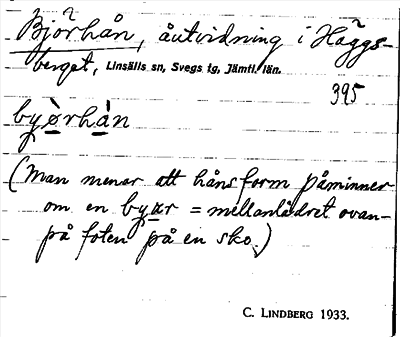 Bjòrhån, åutvidning i Häggs-
berget, Linsälls sn, Svegs tg, Jämtl. län.
395
byòrhàn
(Man menar att håns form påminner
om en byar = mellanlädret ovan-
på foten på en sko.)
C. LINDBERG 1933.